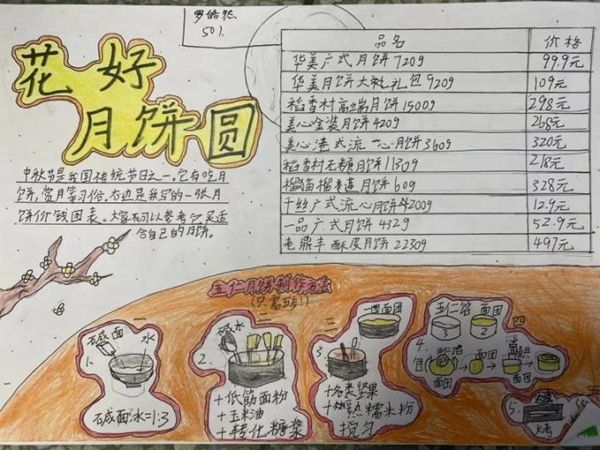 罗皓然
501
花好
月饼圆
中秋节是我国传统节日之一,它有吃月
饼,赏月等习俗。右边是我写的一张月
饼价钱图表。大家可以参考,买适
合自己的月饼。
品名 价格
华美广式月饼720g 99.9元
华美月饼大礼包920g 109元
稻香村高端月饼1500g 298元
美心金装月饼420g 268元
美心港式流心月饼360g 320元
稻香村无糖月饼1130g 218元
榴莲月饼610g 328元
千丝广式流心月饼2000g 12.9元
一品广式月饼432g 52.9元
鼎丰酥皮月饼2230g 497元
五仁月饼制作方法
1.
碱面
水
碱面:水=1:3
2.
碱水
+低筋面粉
+玉米油
+转化糖浆
三
一团面团
+各类坚果
+熟糯米粉
+搅匀
四
4.
五仁馅 面团
3 2
面团
面团
5.
烤